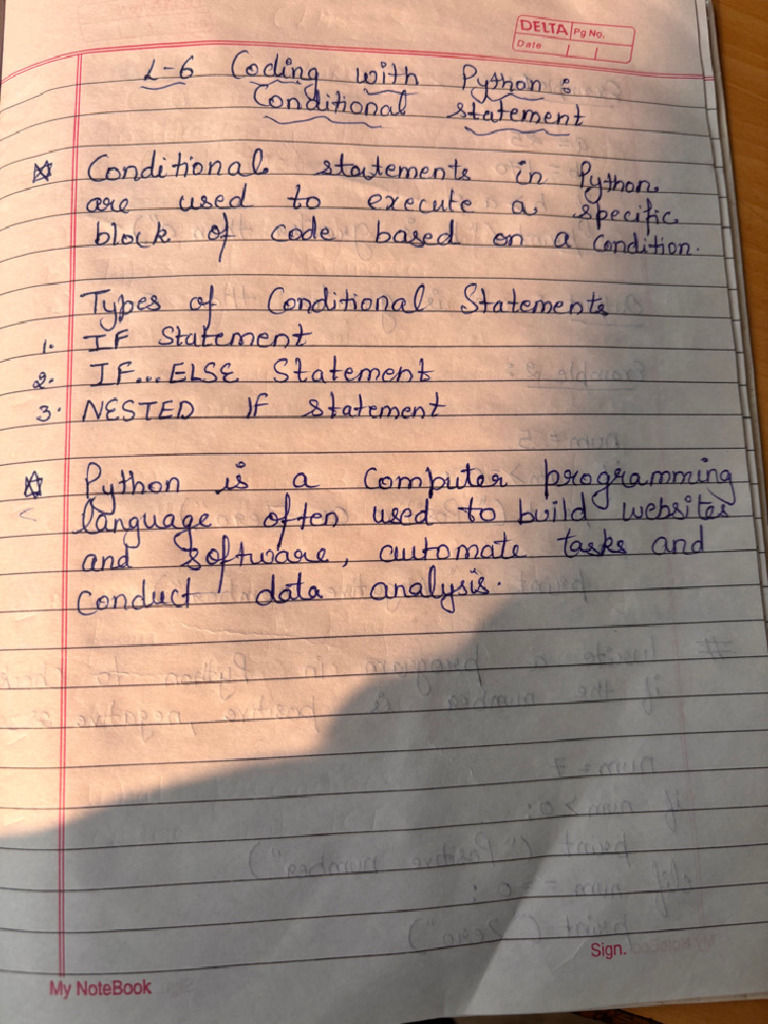 DELTA Pg No.
Date
L-6 Coding with Python :
Conditional statement
Conditional statements in Python
are used to execute a specific
block of code based on a condition.
Types of Conditional Statements
1. IF Statement
2. IF...ELSE Statement
3. NESTED IF statement
Python is a computer programming
language often used to build websites
and software, automate tasks and
conduct data analysis.
Sign.
My NoteBook